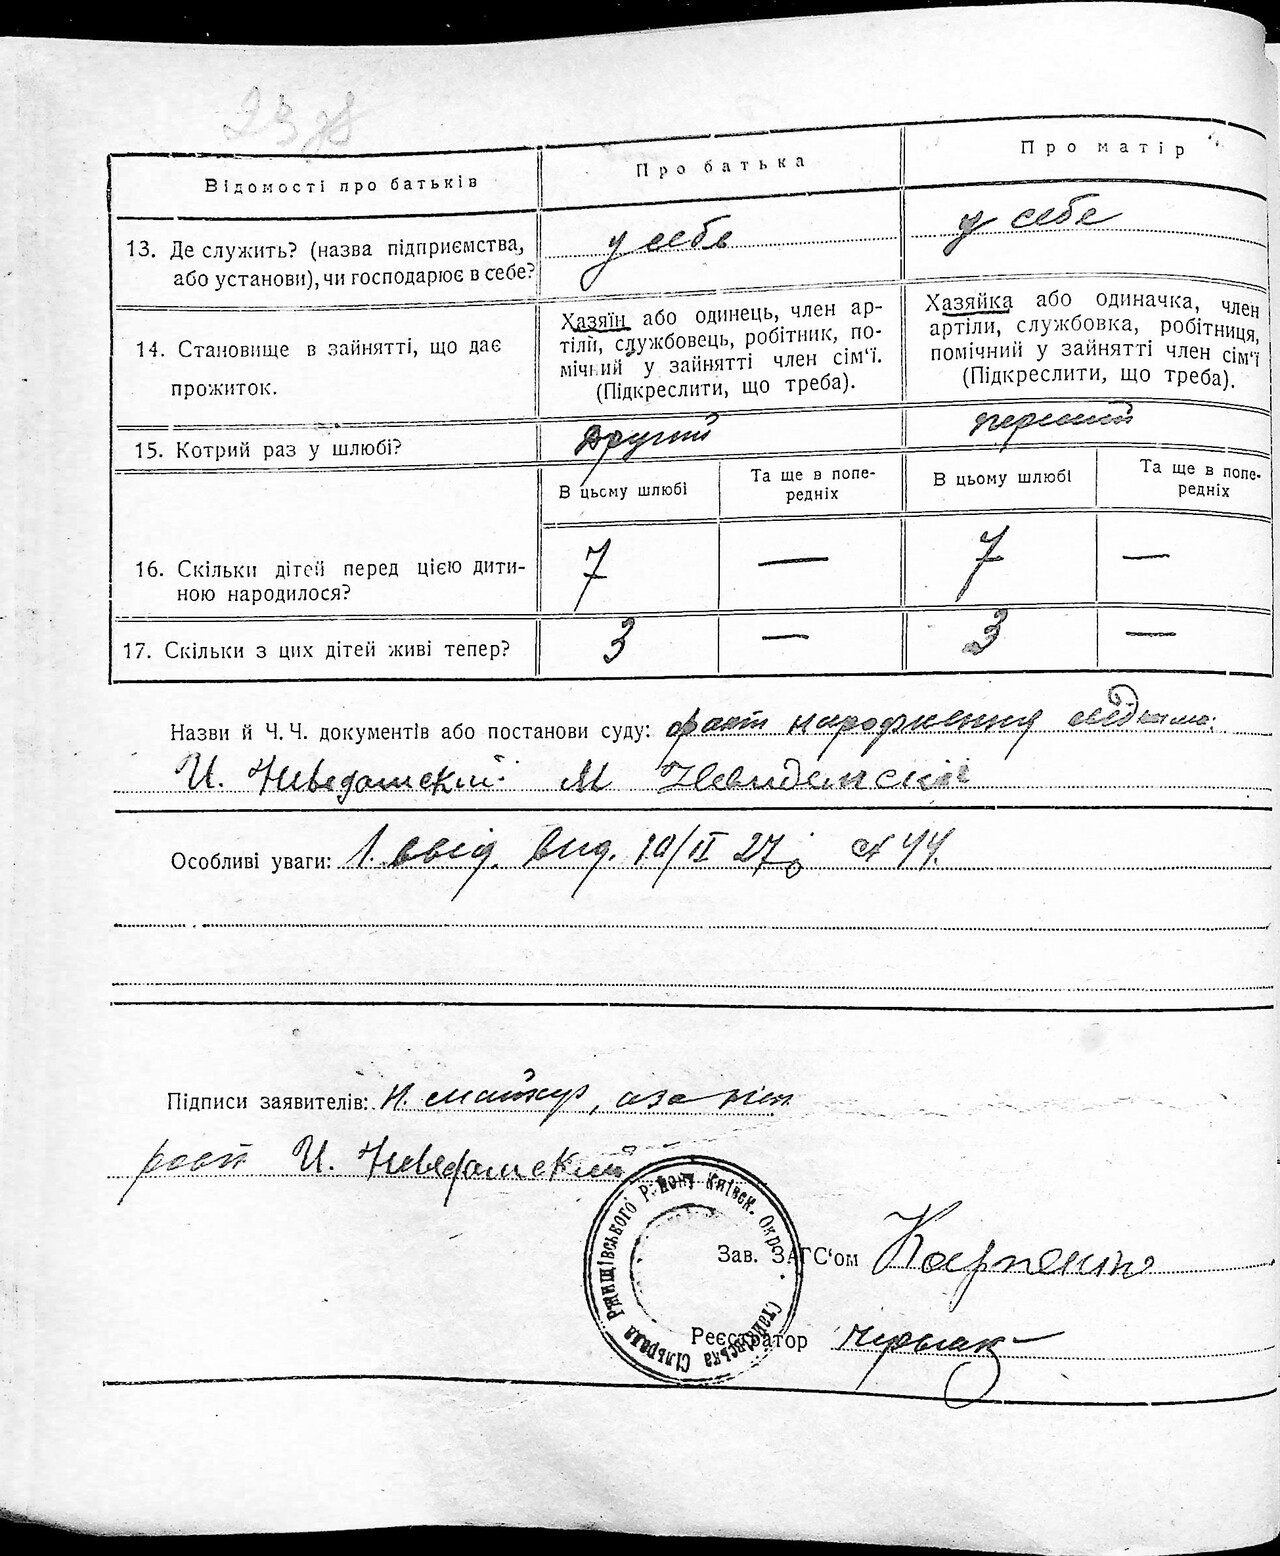 23 зв
Відомості про батьків
Про батька
Про матір
13. Де служить? (назва підприємства,
або установи), чи господарює в себе?
у себе
у себе
14. Становище в зайнятті, що дає
прожиток.
Хазяїн або одинець, член ар-
тілі, службовець, робітник, по-
мічний у зайнятті член сім'ї.
(Підкреслити, що треба).
Хазяйка або одиначка, член
артіли, службовка, робітниця,
помічний у зайнятті член сім'ї
(Підкреслити, що треба).
15. Котрий раз у шлюбі?
другий
первий
В цьому шлюбі
Та ще в попе-
редніх
В цьому шлюбі
Та ще в попе-
редніх
16. Скільки дітей перед цією дити-
ною народилося?
7 — 7 —
17. Скільки з цих дітей живі тепер?
3 — 3 —
Назви й Ч. Ч. документів або постанови суду: факт народження
И. Неведомский М Невидомский
Особливі уваги: 1. вид. 10/II 27 44.
Підписи заявителів: Н.
И. Неведомский
Ржищівського Району Київск. Окр. Стайківська Сільрада
Зав. ЗАГС'ом Карпенко
Реєстратор Черпак